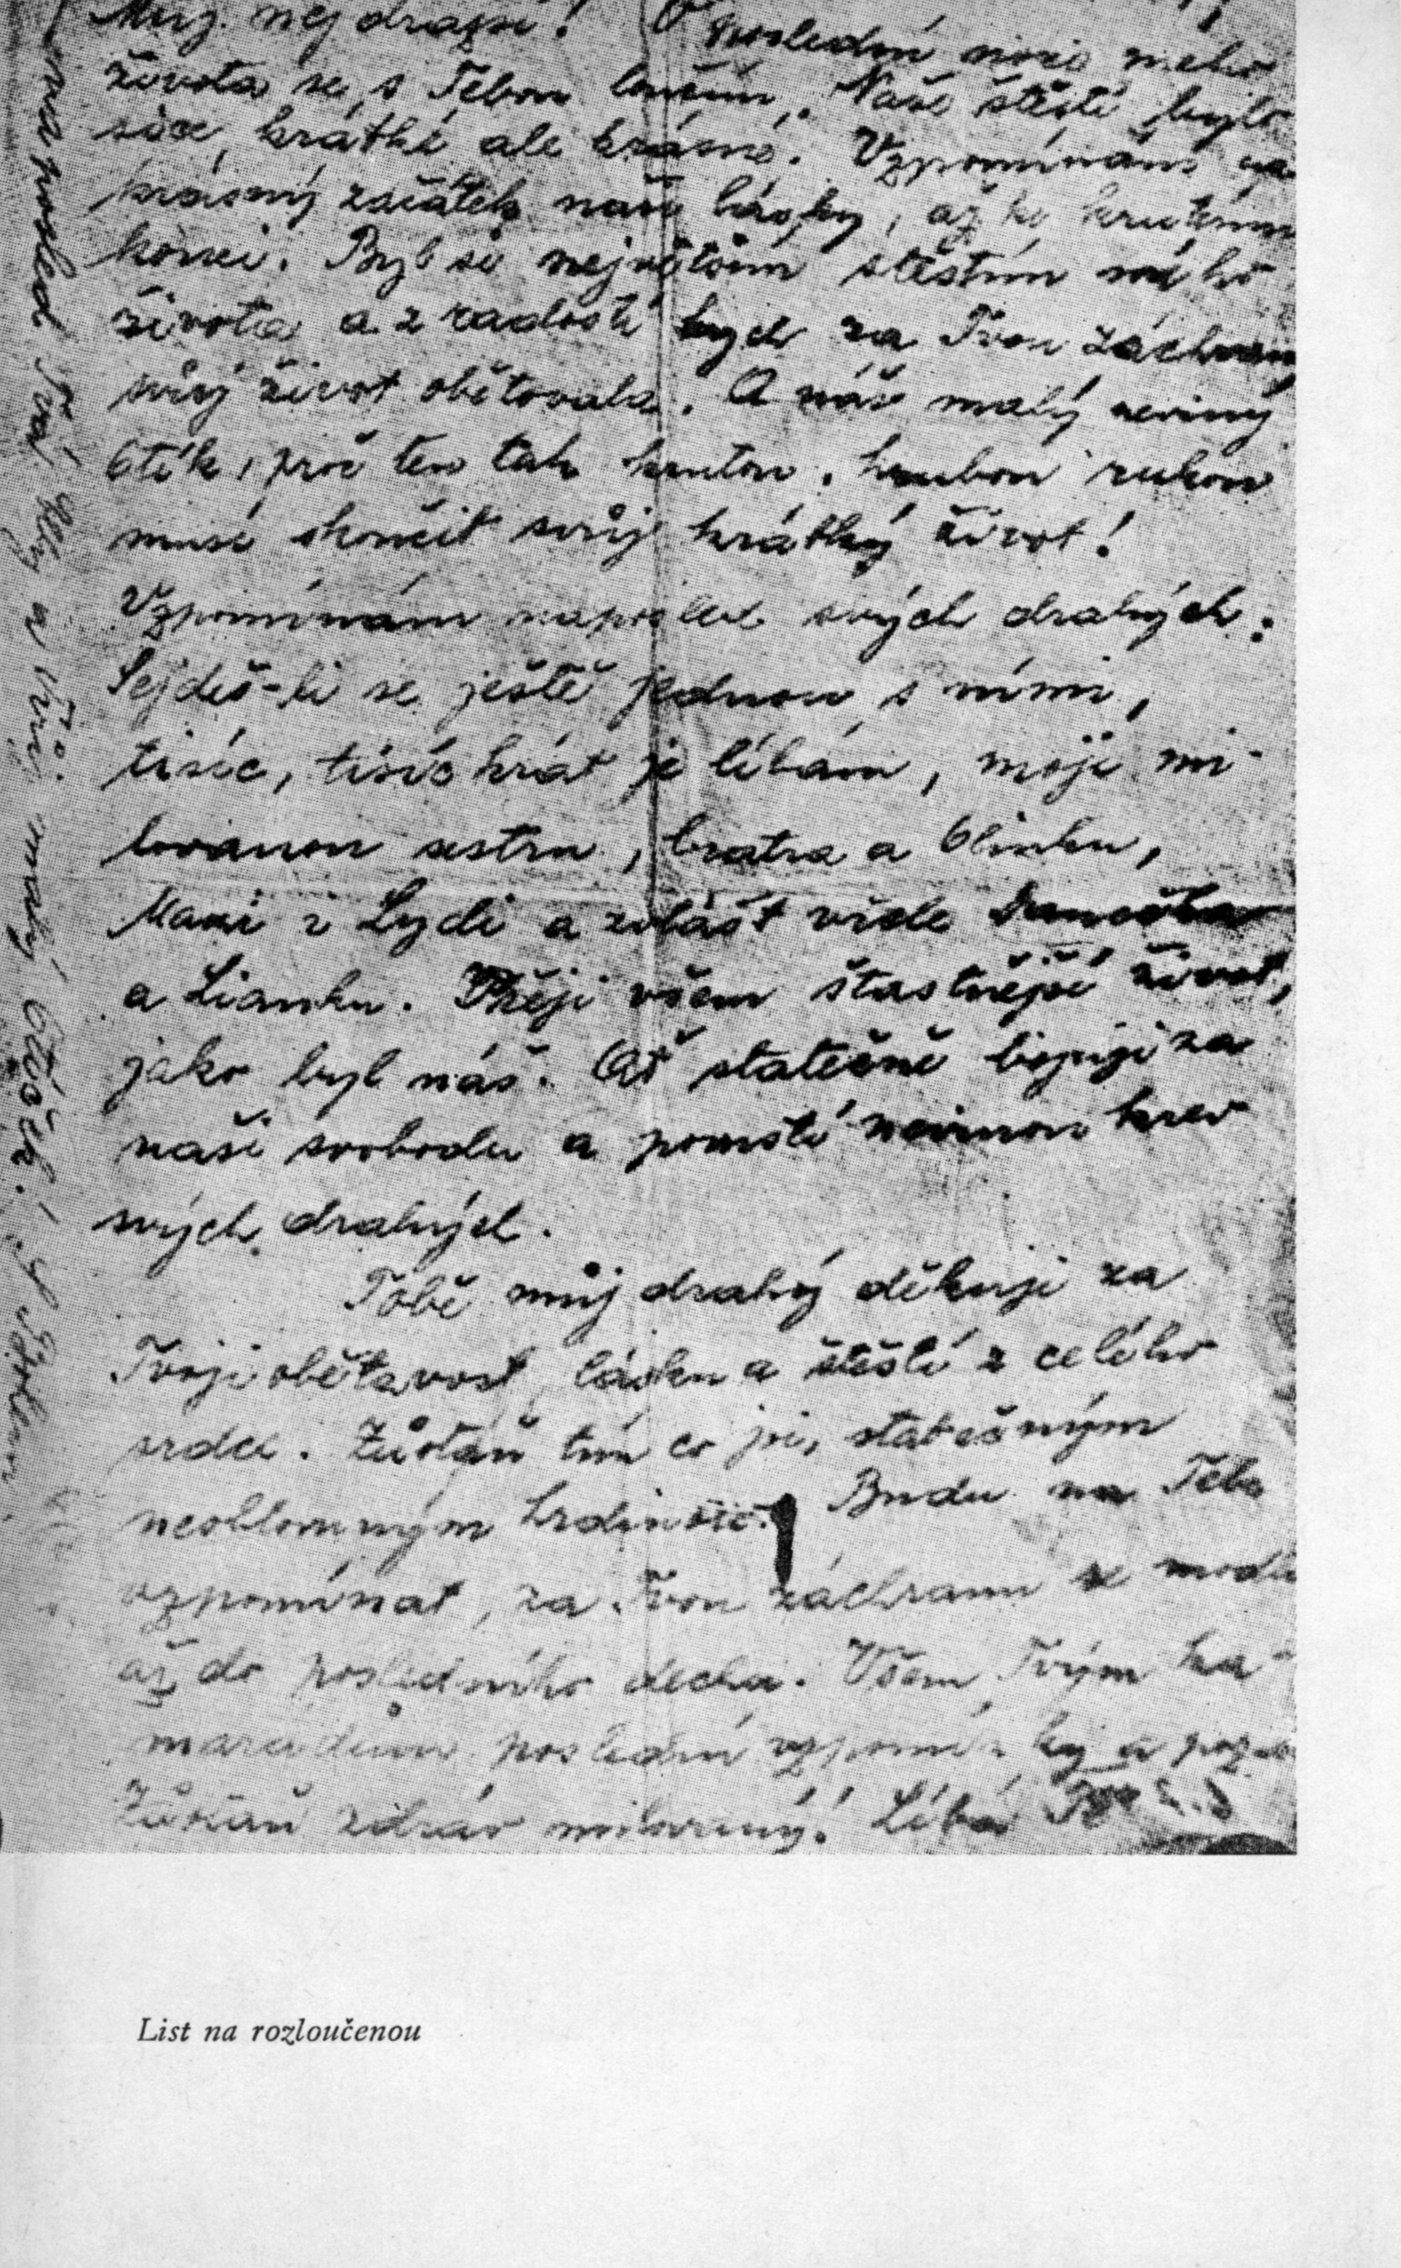 Můj nejdražší! V poslední noci mého
života se s Tebou loučím. Naše štěstí bylo
sice krátké ale krásné. Vzpomínám na
krásný začátek naší lásky, až ke krutému
konci. Byl si největším štěstím mého
života a z radostí bych za Tvou záchranu
svůj život obětovala. A náš malý nevinný
Otík, proč ten tak krutou, hrubou rukou
musí skončit svůj krátký život!
Vzpomínám naposled svých drahých.
Sejdeš-li se ještě jednou s nimi,
tisíc, tisíckrát je líbám, moji mi-
lovanou sestru, bratra a Olinku,
Maxi i Lydi a zvlášť vřele
a Lianku. Přeji všem šťastnější život,
jako byl náš. Ať statečně bojují za
naši svobodu a pomstí nevinnou krev
svých drahých.
Tobě můj drahý děkuji za
Tvoji obětavost, lásku a štěstí z celého
srdce. Zůstaň tím co jsi, statečným
neoblomným hrdinou. Budu na Tebe
vzpomínat, za Tvou záchranu se modlit
až do posledního dechu. Všem Tvým ka-
marádům poslední vzpomínky a
Zůstaň zdráv milovaný! Líbá Tě
naposled Tvá a Tvůj malý Otíček!
List na rozloučenou